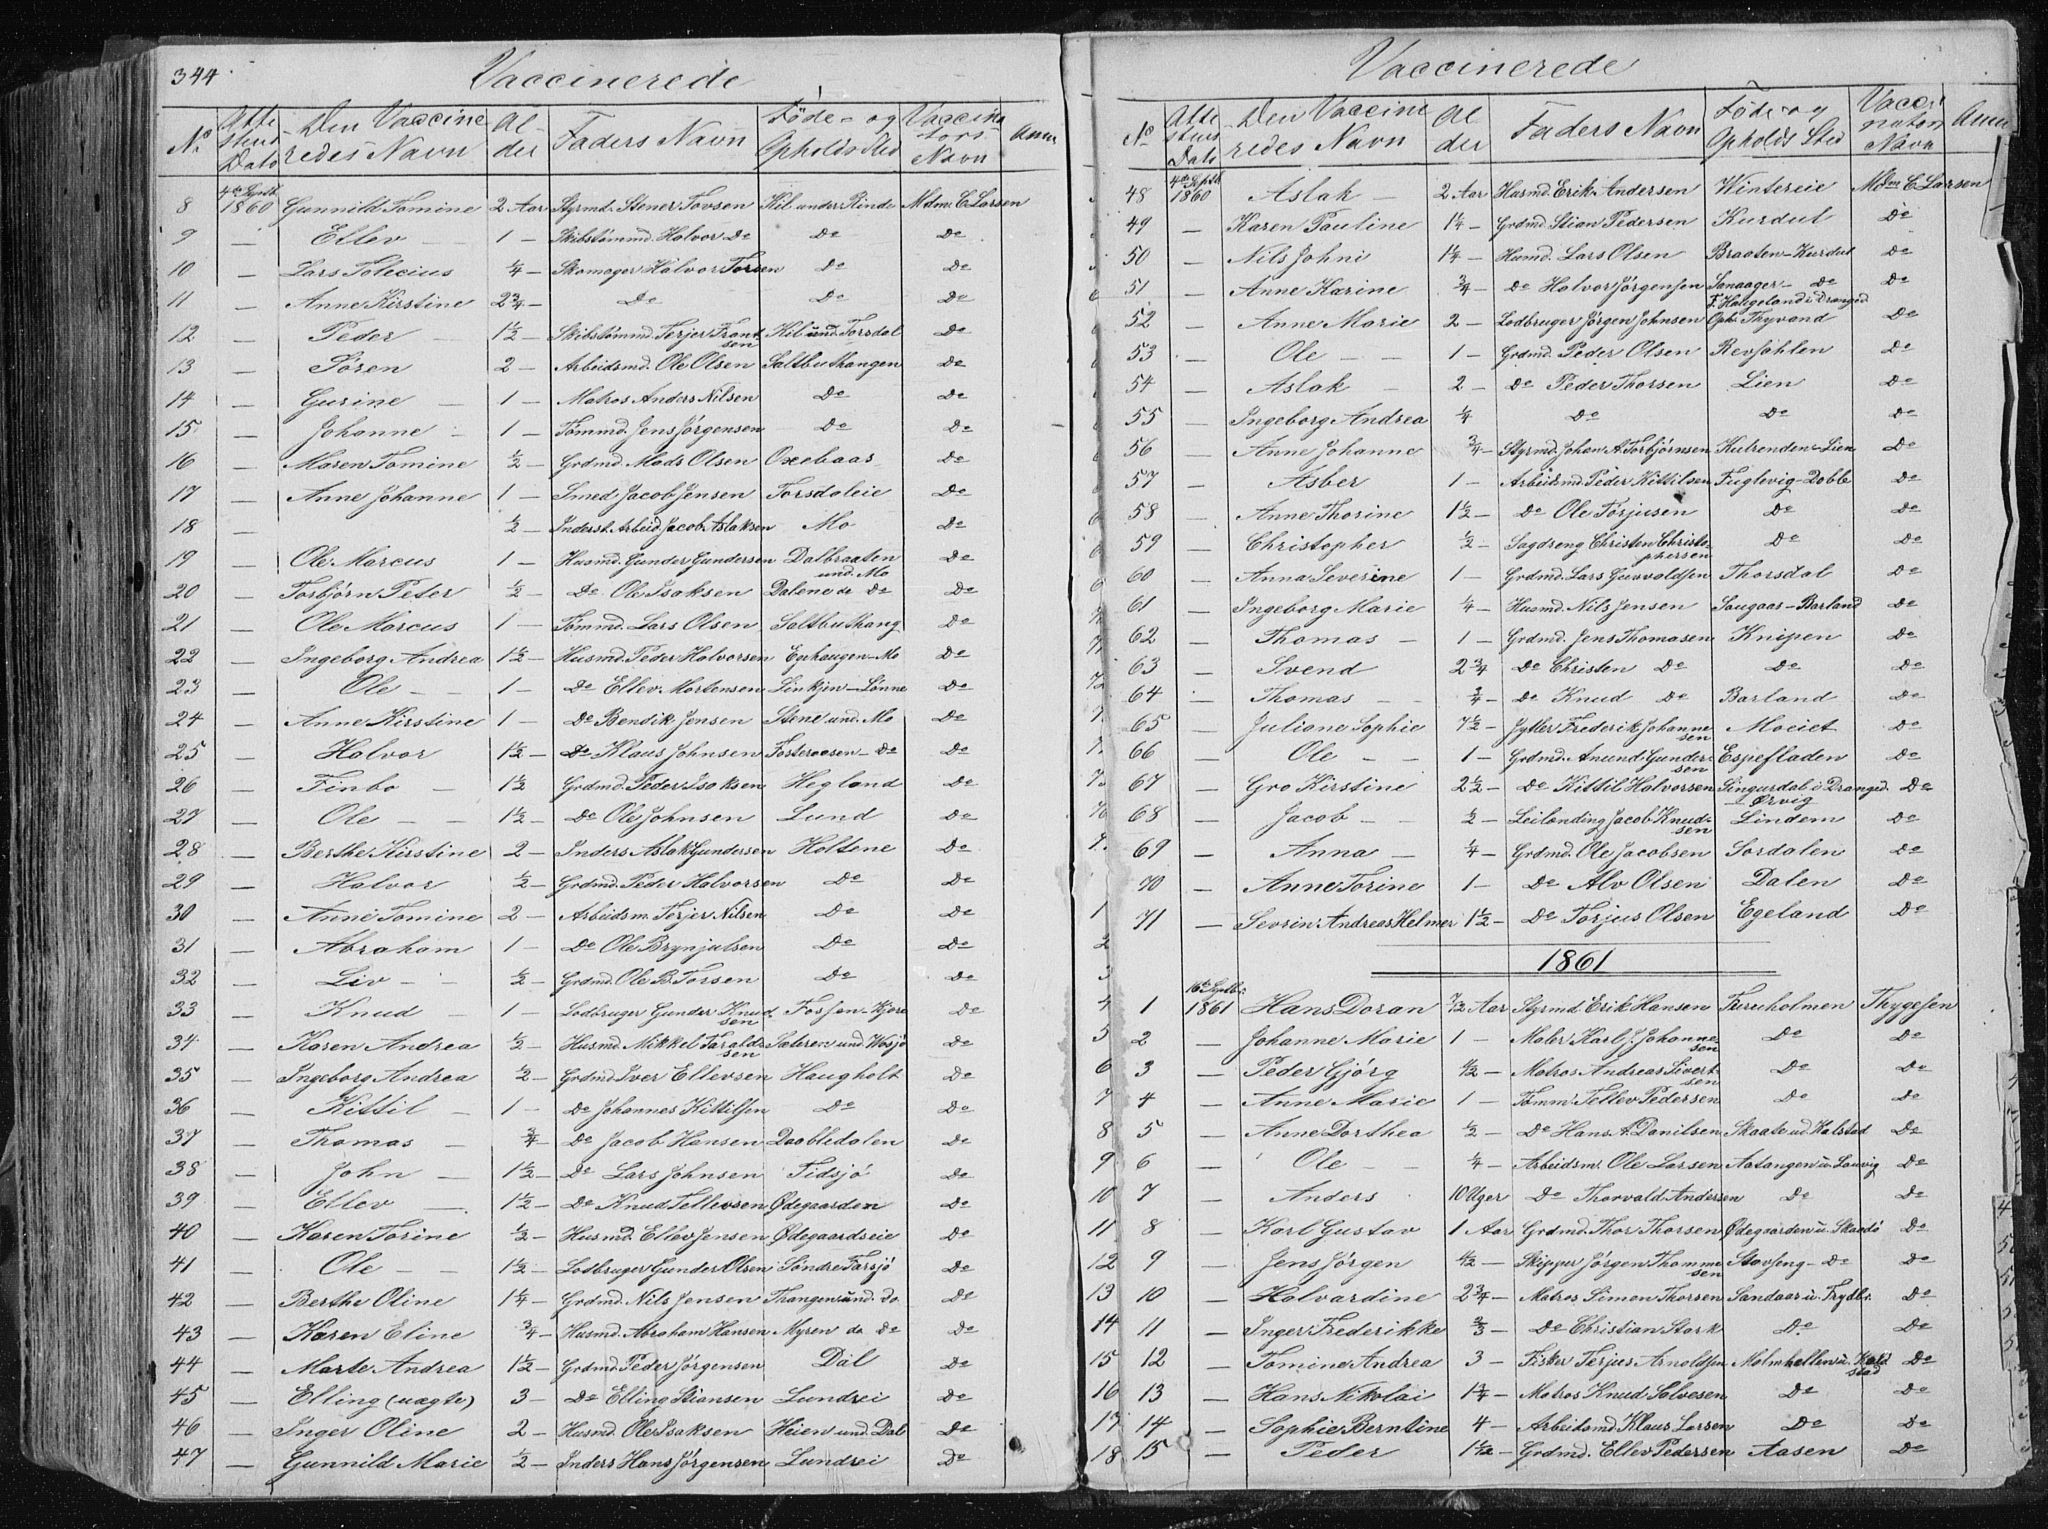 344.
Vaccinerede
No | Attestens Dato | Den Vaccineredes Navn | Alder | Faders Navn | Føde- og Opholds Sted | Vaccinators Navn | Anm
8 | 4de Septb. 1860 | Gunnild Tomine | 2 Aar | Styrmd. Stener Tovsen | Kil under Rinde | Mdm. C. Larsen
9 | — | Ellev | 1 — | Skibstømmd. Halvor Do | Do | Do
10 | — | Lars Tolecius | ¼ — | Skomager Halvor Torsen | Do | Do
11 | — | Anne Kirstine | 2¾ — | Do | Do | Do
12 | — | Peder | 1½ — | Skibstømmd. Terjer Frantsen | Kil und. Torsdal | Do
13 | — | Sören | 2 — | Arbeidsmd. Ole Olsen | Saltbuthangen | Do
14 | — | Gurine | 1 — | Matros Anders Nilsen | Do | Do
15 | — | Johanne | 1 — | Tømmd. Jens Jörgensen | Do | Do
16 | — | Maren Tomine | ½ — | Grdmd. Mads Olsen | Oxebaas | Do
17 | — | Anne Johanne | 1 — | Smed Jacob Jensen | Torsdaleie | Do
18 | — | ½ — | Inderst. Arbeid. Jacob Aslaksen | Mo | Do
19 | — | Ole Marcus | 1 — | Husmd. Gunder Gundersen | Dalbraaten und. Mo | Do
20 | — | Torbjörn Peter | ½ — | Do Ole Isaksen | Dalene de Do | Do
21 | — | Ole Marcus | 1 — | Tømmd. Lars Olsen | Saltbuthang | Do
22 | — | Ingeborg Andrea | 1½ — | Husmd. Peder Halvorsen | Egehaugen - Mo | Do
23 | — | Ole | 1 — | Do Ellev Mortensen | Linkjen - Lønne | Do
24 | — | Anne Kirstine | 1 — | Do Bendik Jensen | Stene und. Mo | Do
25 | — | Halvor | 1½ — | Do Klaus Johnsen | Fosteraasen - Do | Do
26 | — | Finbo | 1½ | Grdmd. Peder Isaksen | Hegland | Do
27 | — | Ole | 1½ — | Do Ole Johnsen | Lund | Do
28 | — | Berthe Kirstine | 2 — | Inders Aslak Gundersen | Holtene | Do
29 | — | Halvor | ½ — | Grdmd. Peder Halvorsen | Do | Do
30 | — | Anne Tomine | 2 — | Arbeidsm. Terjer Nilsen | Do | Do
31 | — | Abraham | 1 — | Do Ole Brynjulsen | Do | Do
32 | — | Liv | ½ — | Grdmd. Ole B. Torsen | Do | Do
33 | — | Knud | 1 — | Lodbruger Gunder Knudsen | Fossen - Kjore | Do
34 | — | Karen Andrea | ½ — | Husmd. Mikkel Taraldsen | Sæteren und Vosjö | Do
35 | — | Ingeborg Andrea | ½ — | Grdmd. Iver Ellevsen | Haugholt | Do
36 | — | Kittil | 1 — | Do Johannes Kittilsen | Do | Do
37 | — | Thomas | ¾ — | Do Jacob Hansen | Daabledalen | Do
38 | — | John | 1½ — | Do Lars Johnsen | Tidsjö | Do
39 | — | Ellev | 1½ — | Do Knud Tellevsen | Ødegaarden | Do
40 | — | Karen Torine | ½ — | Husmd. Ellev Jensen | Ødegaardseie | Do
41 | — | Ole | 1½ — | Lodbruger Gunder Olsen | Söndre Tarsjö | Do
42 | — | Berthe Oline | 1¼ — | Grdmd. Nils Jensen | Thangen und. do | Do
43 | — | Karen Eline | ¾ — | Husmd. Abraham Hansen | Myren do Do | Do
44 | — | Marte Andrea | 1½ — | Grdmd. Peder Jörgensen | Dal | Do
45 | — | Elling (uægte) | 3 — | Do Elling Stiansen | Lundrei | Do
46 | — | Inger Oline | 2 — | Husmd. Ole Isaksen | Heien und Dal | Do
47 | — | Gunnild Marie | ½ — | Inders Hans Jörgensen | Lundrei | Do
Vaccinerede
No | Attestens Dato | Den Vaccineredes Navn | Alder | Faders Navn | Føde og Opholds Sted | Vaccinators Navn | Anm
48 | 4de Septb 1860 | Aslak | 2 Aar | Husmd. Erik Andersen | Wintereie | Mdm C. Larsen
49 | — | Karen Pauline | 1¼ — | Grdmd. Stian Pedersen | Kurdul | Do
50 | — | Nils Johni | 1¼ — | Husmd. Lars Olsen | Braaten - Kurdul | Do
51 | — | Anne Karine | ¾ — | Do Halvor Jörgensen | Sanaager - Do | Do
52 | — | Anne Marie | 2 — | Lodbruger Jörgen Johnsen | F. Haugeland i Dranged Oph. Thyvand | Do
53 | — | Ole | 1 — | Grdmd. Peder Olsen | Revsöhlen | Do
54 | — | Aslak | 2 — | Do Peder Thorsen | Lien | Do
55 | — | Ingeborg Andrea | ¼ — | Do | Do | Do
56 | — | Anne Johanne | ¾ — | Styrmd. Johan A. Torbjörnsen | Kulrenden - Lien | Do
57 | — | Asber | 1 — | Arbeidsmd. Peder Kittilsen | Fuglevig - Doble | Do
58 | — | Anne Thorine | 1½ — | Do Ole Torjusen | Do | Do
59 | — | Christopher | ½ — | Sagdreng Christen Christophersen | Do | Do
60 | — | Anna Severine | 1 — | Grdmd. Lars Gunvaldsen | Thorsdal | Do
61 | — | Ingeborg Marie | ¼ — | Husmd. Nils Jensen | Saugaas - Barland | Do
62 | — | Thomas | 1 — | Grdmd. Jens Thomasen | Knipen | Do
63 | — | Svend | 2¾ — | Do Christen Do | Do | Do
64 | — | Thomas | ¾ — | Do Knud Do | Barland | Do
65 | — | Juliane Sophie | 7½ — | Jytler Frederik Johannesen | Moeiet | Do
66 | — | Ole | 1 — | Grdmd. Anund Gundersen | Espefladen | Do
67 | — | Gro Kirstine | 2½ — | Do Kittil Halvorsen | Singurdal i Dranged - Ørvig | Do
68 | — | Jacob | ½ — | Leilending Jacob Knudsen | Lindem | Do
69 | — | Anna | ¼ — | Grdmd. Ole Jacobsen | Sordalen | Do
70 | — | Anne Torine | 1 — | Do Alv Olsen | Dalen | Do
71 | — | Sevrin Andreas Helmer | 1½ — | Do Torjus Olsen | Egeland | Do
1861
1 | 16de Septbr. 1861 | Hans Doran | 7/12 Aar | Styrmd Erik Hansen | Furuholmen | Thygesen
2 | — | Johanne Marie | 1 — | Maler Karl J. Johannesen | Do | Do
3 | — | Peder Gjörg | ½ — | Matros Andreas Sivertsen | Do | Do
4 | — | Anne Marie | 1 — | Tömm. Tellev Pedersen | Do | Do
5 | — | Anne Dorthea | ½ — | Do Hans A. Danilsen | Skaate ud Kalstad | Do
6 | — | Ole | ¼ — | Arbeidsm. Ole Larsen | Aatangen u. Louvig | Do
7 | — | Anders | 10 Uger | Do Thorvald Andersen | Do | Do
8 | — | Karl Gustav | 1 Aar | Grdmd. Thor Thorsen | Ødegaarden u. Skaadö | Do
9 | — | Jens Jörgen | ½ — | Skipper Jörgen Thommesen | Stovseng - Do | Do
10 | — | Halvardine | 2¾ — | Matros Simon Thorsen | Sandaas u. Frydb. | Do
11 | — | Inger Frederikke | ⅔ — | Do Christian Stark | Do | Do
12 | — | Tomine Andrea | 3 — | Fisker Terjus Arnoldsen | Malmhellen u. Kalstad | Do
13 | — | Hans Nikolai | 1¾ — | Matros Knud Salvesen | Do | Do
14 | — | Sophie Berntine | 4 — | Arbeidsmd Klaus Larsen | Do | Do
15 | — | Peder | 1½ — | Grdmd. Ellev Pedersen | Aasen | Do